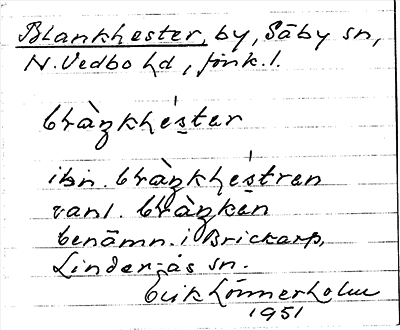 Blankhester, by, Säby sn,
N. Vedbo hd, Jönk. l.
bràŋkhéster
ibn. bràŋkhéstren
vanl. bràŋken
benämn. i Brickarp,
Linderås sn.
Erik Lönnerholm
1951